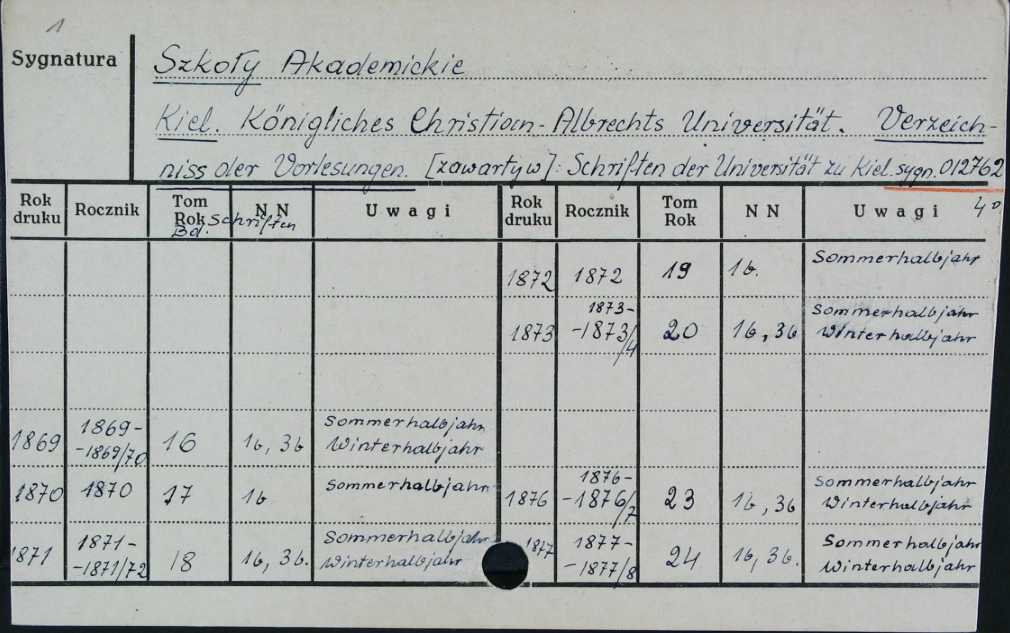 1
Sygnatura
Szkoły Akademickie
Kiel. Königliches Christian-Albrechts Universität. Verzeich-
niss der Vorlesungen. [zawarty w]: Schriften der Universität zu Kiel. sygn. 012762
4°
Rok druku Rocznik Tom Rok Bd. Schriften N N Uwagi Rok druku Rocznik Tom Rok N N Uwagi
1872 1872 19 1b. Sommerhalbjahr
1873 1873-
-1873/4 20 1b, 3b Sommerhalbjahr
Winterhalbjahr
1869 1869-
-1869/70 16 1b, 3b Sommerhalbjahr
Winterhalbjahr
1870 1870 17 1b Sommerhalbjahr
1876 1876-
-1876/7 23 1b, 3b Sommerhalbjahr
Winterhalbjahr
1871 1871-
-1871/72 18 1b, 3b. Sommerhalbjahr
Winterhalbjahr
1877 1877-
-1877/8 24 1b, 3b. Sommerhalbjahr
Winterhalbjahr